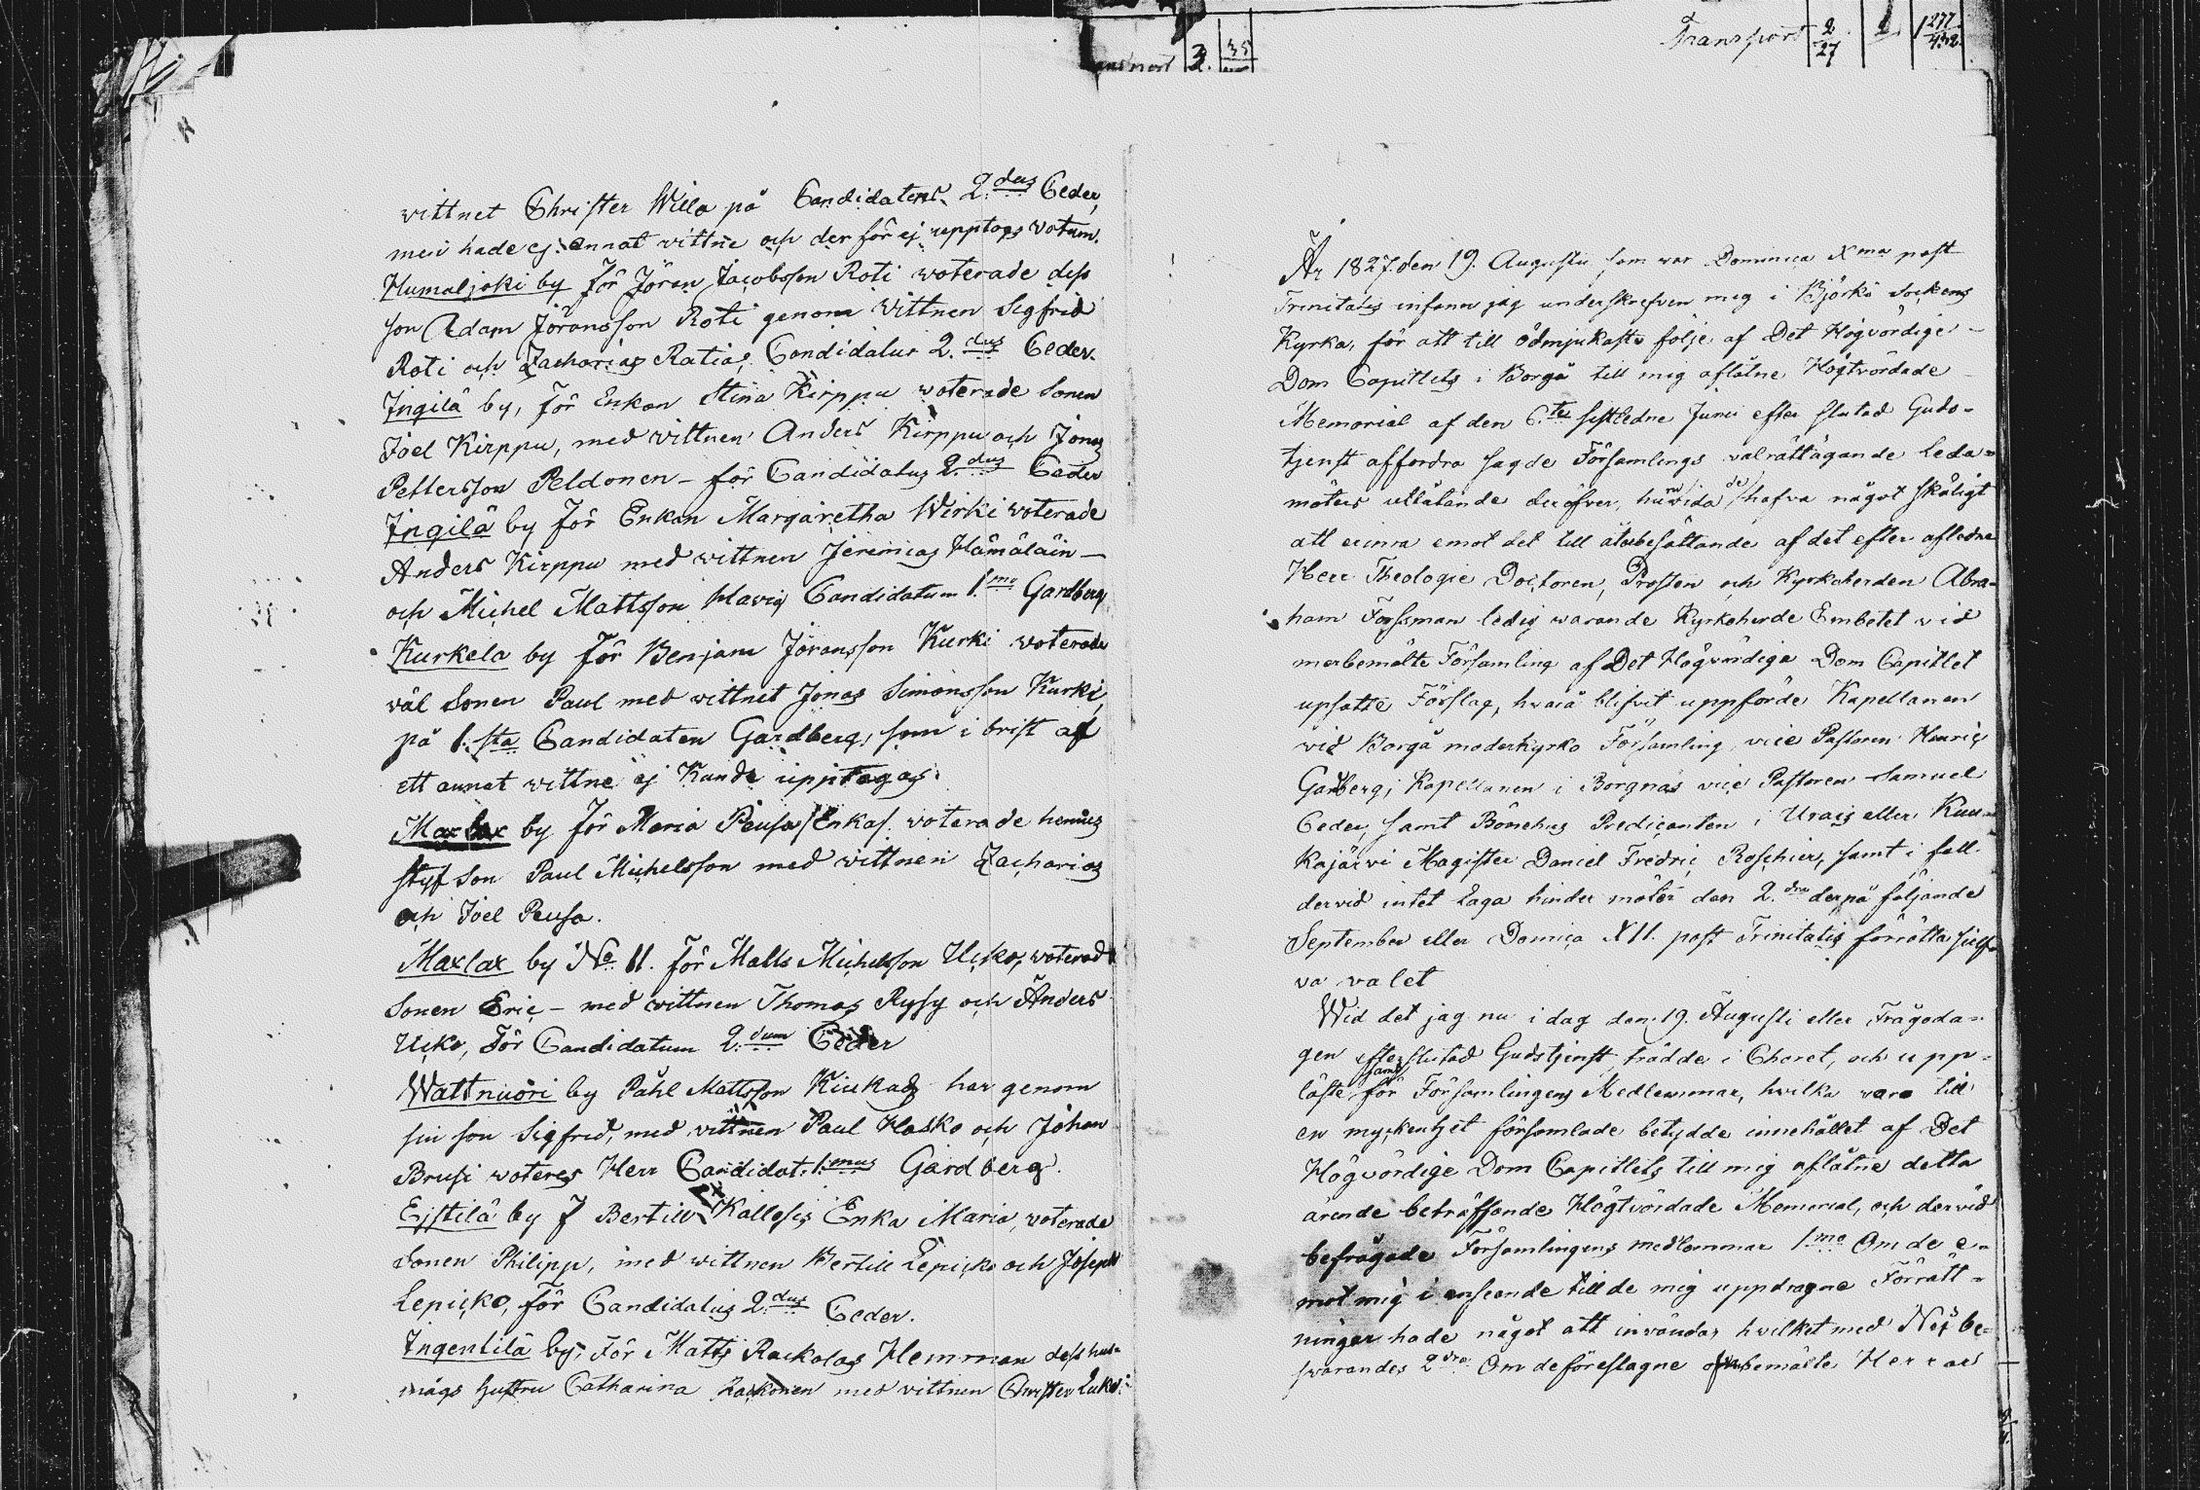 Transport 2/27 . 1. 1 277/432.
3. 35
vittnet Christer Willa på Candidaten 2.dus Ceder,
men hade ej annat vittne och der för ej upptogs votum.
Humaljoki by För Jöran Jacobsson Roti woterade dess
son Adam Jöransson Roti genom vittnen Sigfrid
Roti och Zacharias Ratia, Candidatus 2.dus Ceder.
Ingilä by, För Enkan Stina Kirppu woterade Sonen
Joel Kirppu, med vittnen Anders Kirppu och Jonas
Pettersson Peldonen – för Candidatus 2.dus Ceder
Ingilä by För Enkan Margaretha Wirki woterade
Anders Kirppu med wittnen Jeremias Hämäläin –
och Michel Mattsson Havia Candidatum 1.mo Gardberg
Kurkela by För Benjam Jöransson Kurki woterade
väl Sonen Paul med wittnet Jonas Simonsson Kurki,
på 1.sta Candidaten Gardberg, som i brist af
ett annat wittne ej Kunde upptagas.
Maxlax by för Maria Peusa /Enka/ woterade hennes
styf Son Paul Michelsson med wittnen Zacharias
och Joel Peusa.
Maxlax by No 11. För Matts Michelsson Ucko, woterade
Sonen Eric – med wittnen Thomas Rysy och Anders
Ucko, För Candidatum 2.dum Ceder
Wattnuori by Påhl Mattsson Kiukas har genom
sin son Sigfrid, med vittnen Paul Hosko och Johan
Brusi woteres Herr Candidat. 1.mus Gardberg.
Eistilä by f Bertill Kallosis Enka Maria, woterade
Sonen Philipp, med wittnen Bertill Lepicko och Joseph
Lepicko, för Candidatus 2.dus Ceder.
Ingentilä by, För Matts Rackolas Hemman dess hus-
mågs hustru Catharina med vittnen Christer
År 1827 den 19. Augusti som war Dominica Xma post
Trinitatis infann jag underskrefven mig i Björkö Sockens
Kyrka, för att till ödmjukaste följe af Det Högvördige
Dom Capitlets i Borgå till mig aflåtne Högtvördade
Memorial af den 6.te sistledne Junii efter slutad Guds-
tjenst affordra sagde Församlings valrättägande Leda-
möters utlåtande deröfver, huruvida de hafva något skäligt
att erinra emot det till återbesättande af det efter aflidne
Herr Theologie Doctoren, Prosten och Kyrkoherden Abra-
ham Forssman ledig warande Kyrkoherde Embetet vid
merbemälte Församling af Det Högvördiga Dom Capitlet
upsatte Förslag, hvarå blifvit uppförde Kapellanen
vid Borgå moderkyrko Församling, vice Pastoren Henric
Gardberg, Kapellanen i Borgnäs vice Pastoren Samuel
Ceder, samt Bönehus Predicanten i Urais eller Kuu-
kajärvi Magister Daniel Fredric Roschier, samt i fall
dervid intet Laga hinder möter den 2.dra derpå följande
September eller Domica XII. post Trinitatis förrätta sjelf-
va valet
Wid det jag nu i dag den 19. Augusti eller Frågoda-
gen efter slutad Gudstjenst trädde i Choret, och upp-
läste samt för Församlingens Medlemmar, hvilka voro till
en myckenhet församlade betydde innehållet af Det
Högvördige Dom Capitlets till mig aflåtne detta
ärende beträffande Högtvördade Memorial, och dervid
befrågade Församlingens medlemmar 1.mo Om de e-
mot mig i anseende till de mig uppdragne Förrätt-
ningar hade något att invända, hvilket med Nej be-
svarandes 2.do Om de föreslagne ofvanbemälte Herrar